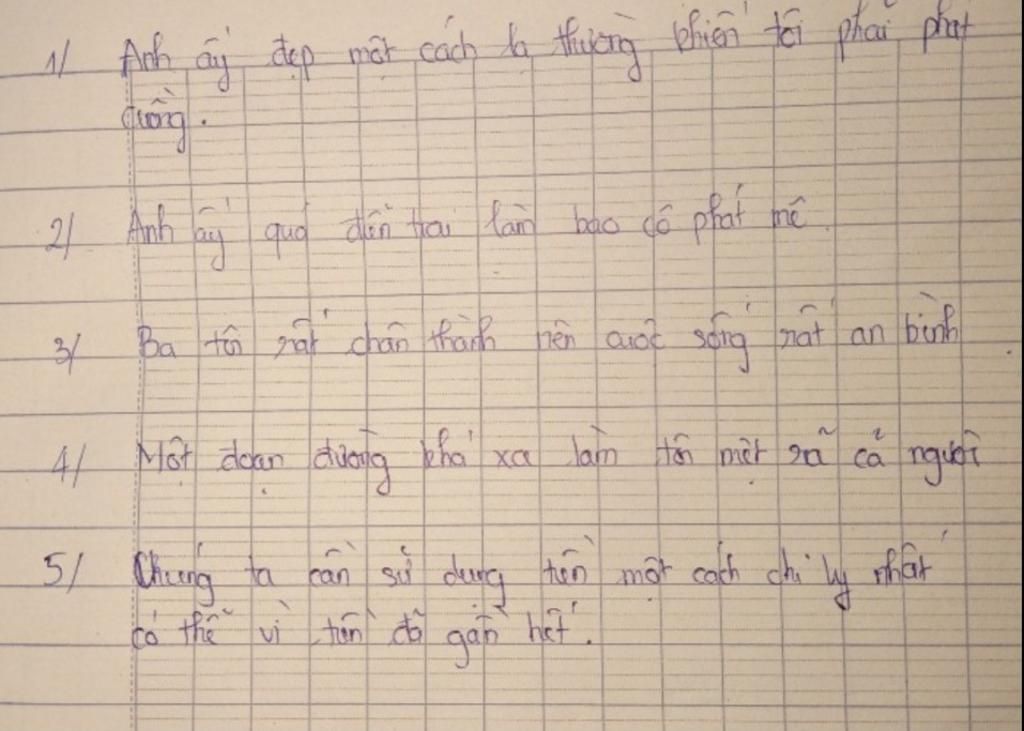 1/ Anh ấy đẹp một cách lạ thường khiến tôi phải phát
cuồng.
2/ Anh ấy quá điển trai làm bao cô phát mê.
3/ Ba tôi rất chân thành nên cuộc sống rất an bình
4/ Một đoạn đường khá xa làm tôi mệt rã cả người
5/ Chúng ta cần sử dụng tiền một cách chi ly nhất
có thể vì tiền đã gần hết.